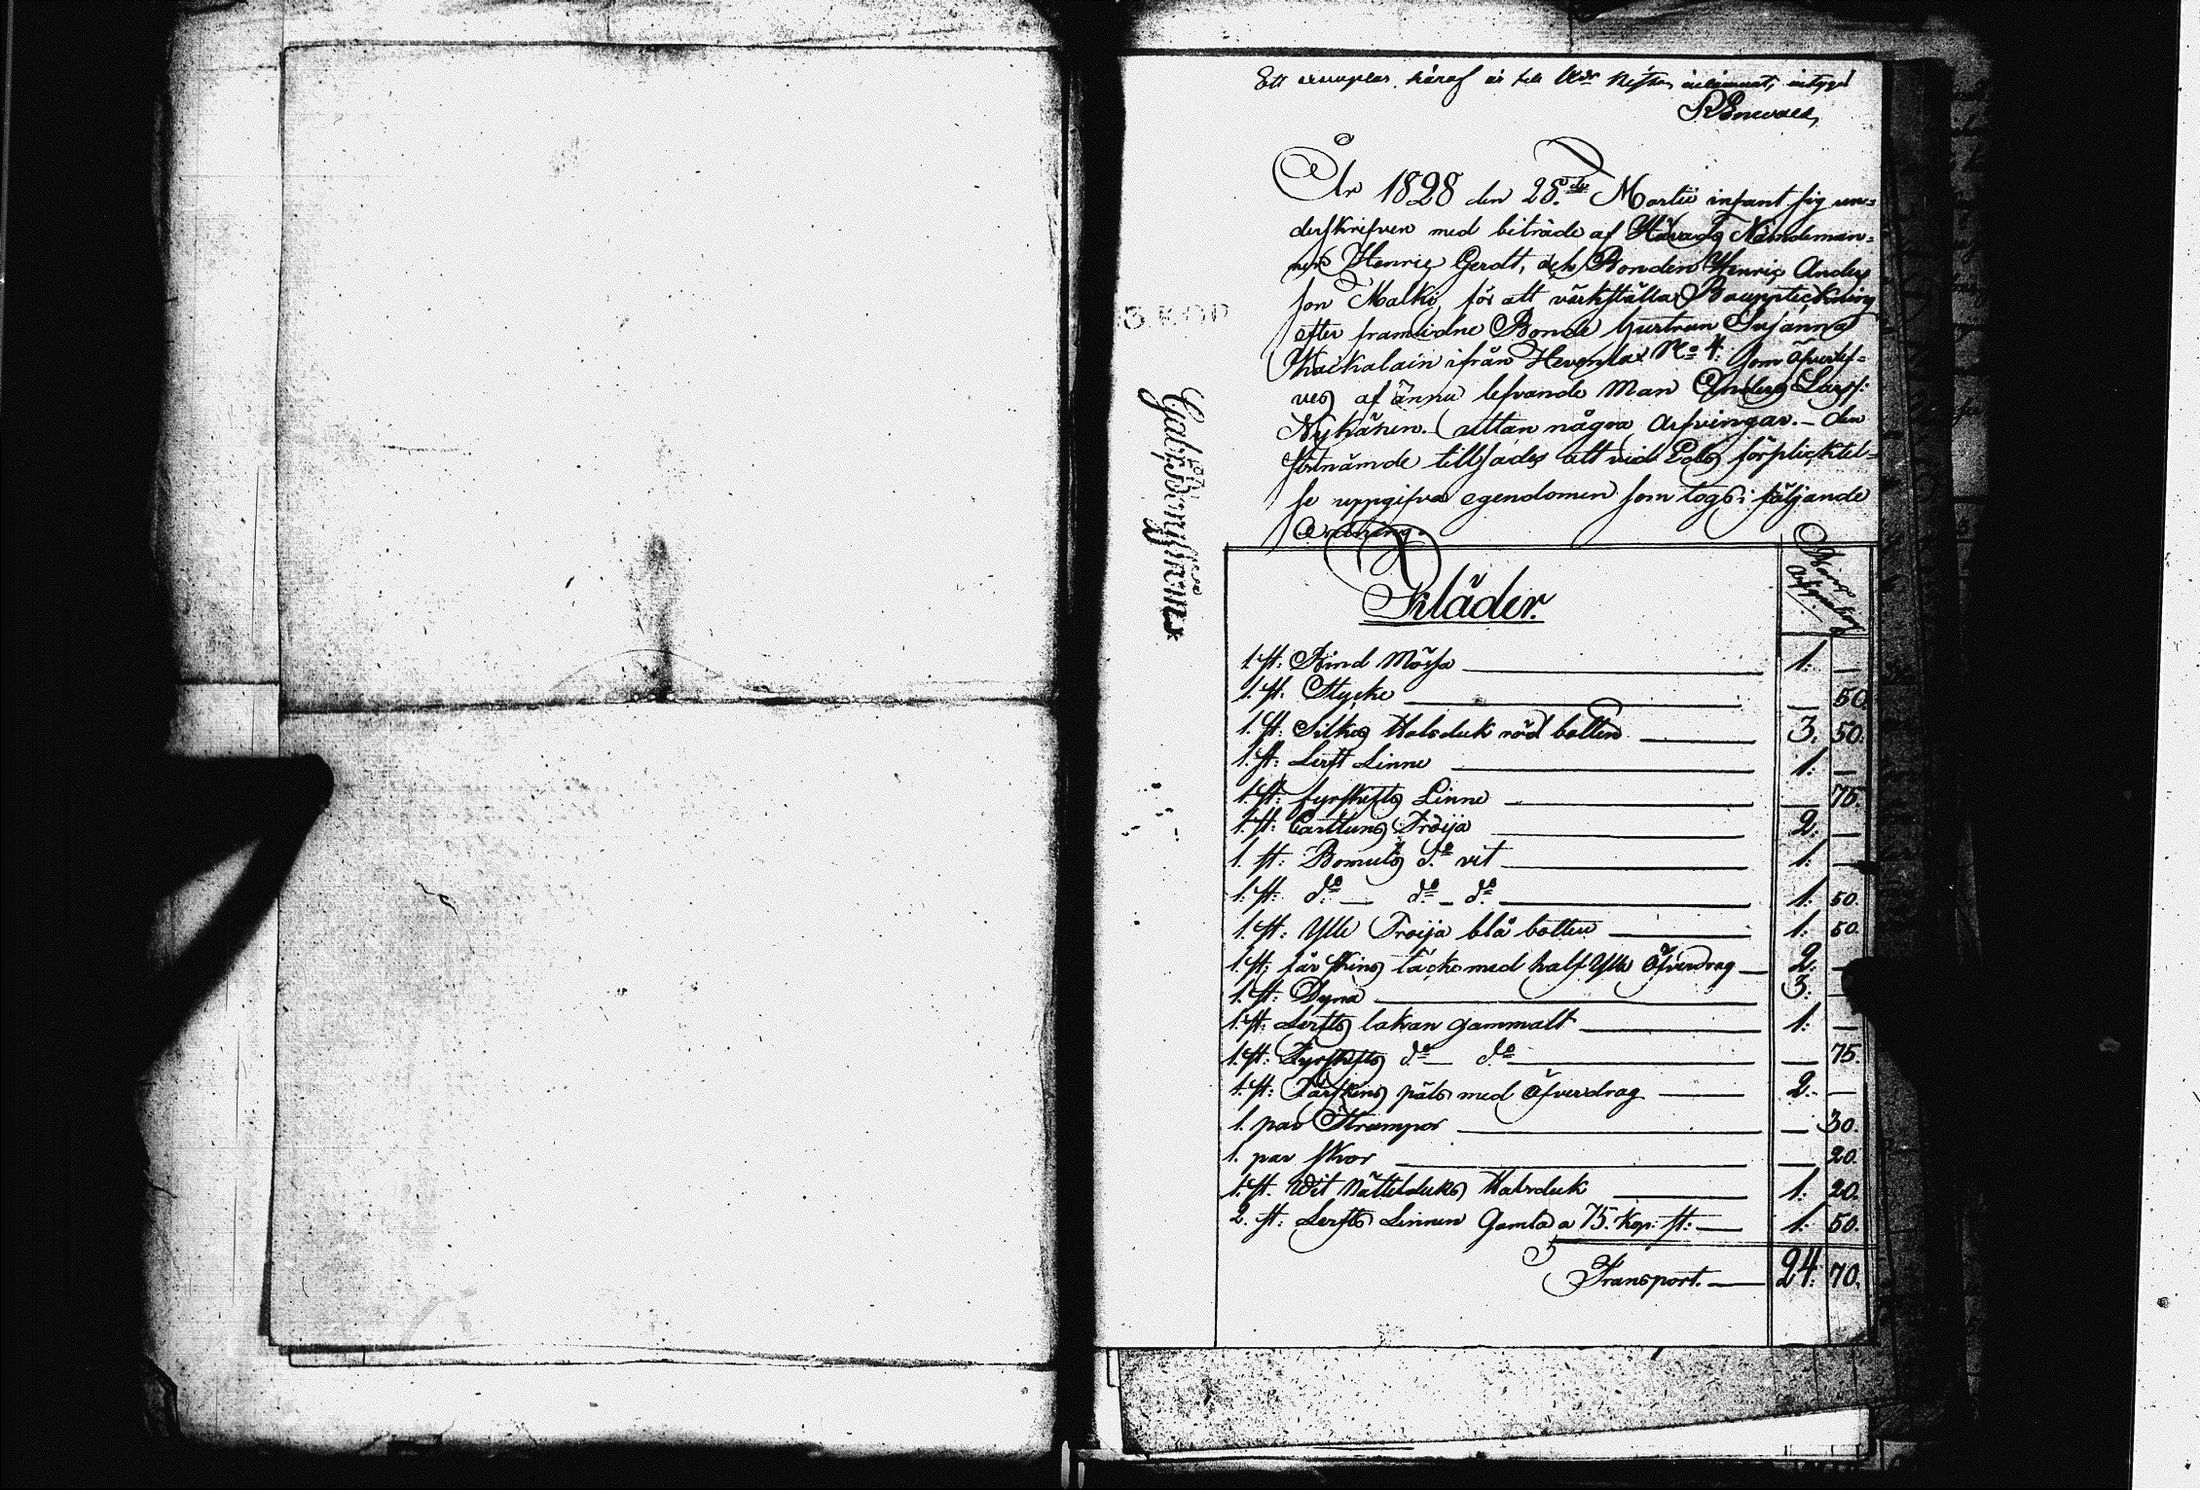 Ett exemplar häraf är till inlämnat, intygar
År 1828 den 28de Martii infant sig un=
derskrifven med biträde af Härads Nämdeman=
nen Henric Gerdt, och Bonden Henric Anders
son Malki, för att värkställa Bouppteckning
efter framlidne Bonde hustrun Susanna
Kaikalain ifrån Hevonlax No 4. som öfverlef=
ves af ännu lefvande Man Anders Larss:
Nykänen. uttan några Arfvingar. – den
förtnämde tillsades att vid Eds förplicktel=
se uppgifva egendomen som togs i följande
Ordning.
Kläder.
1. st: Bind Mössa 1. —
1. st: Stycke — 50.
1. st: Silkes Halsduk röd botten 3. 50.
1. st: Lerft Linne 1. —
1. st: fyrskefts Linne — 75.
1. st: Cattuns Tröija 2. —
1. st: Bomuls do vit 1. —
1. st: do — do – do 1. 50.
1. st: Ylle Tröija blå botten 1. 50.
1. st: får skins täcke med half Ylle öfverdrag 2. —
1. st: Dyna 3. —
1. st: Lerfts lakan gammalt 1. —
1. st: Fyrskefts do — do — 75.
1. st: Fårskins päls med öfverdrag 2. —
1. par Strumpor — 30.
1. par skor — 20.
1. st. Vit Nättelduks Halsduk 1. 20.
2. st: Lerfts Linnen Gamla a 75. Kop: st: 1. 50.
Transport. 24. 70.